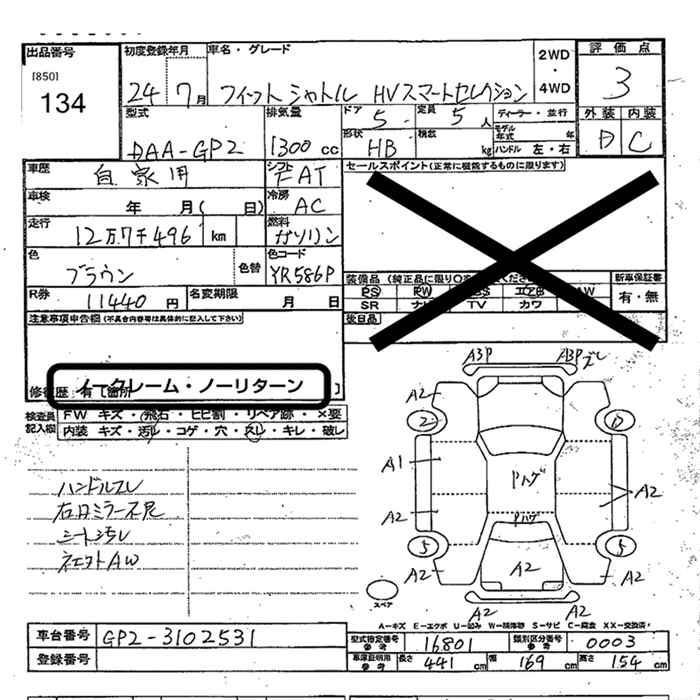 出品番号 初度登録年月 車名・グレード 2WD ・ 4WD 評価点
[850]
134
24 7月 フィット シャトル HVスマートセレクション 3
型式 排気量 ドア 5 定員 5人 ディーラー・並行 外装 内装
DAA-GP2 1300cc 形状 HB 積載 kg モデル年式 年 D C
ハンドル 左・右
車歴 自家用 シフト FAT セールスポイント(正常に機能するものに限ります)
車検 年 月( 日) 冷房 AC
走行 12万7千496 km 燃料 ガソリン
色 ブラウン 色替 色コード YR586P 装備品(純正品に限り○ くださ 新車保証書
PS PW エアB AW 有・無
R券 11440円 名変期限 月 日 SR ナビ TV カワ
注意事項申告欄(不具合内容等は具体的に記入して下さい) 後日品
ノークレーム・ノーリターン
修復歴 有 [箇所 ]
検査員記入欄 FW キズ・飛石・ヒビ割・リペア跡・×要
内装 キズ・汚レ・コゲ・穴・スレ・キレ・破レ
ハンドルスレ
シート汚レ
A3P A3P ズレ
A2 A2
A1 Pハゲ
A2 A2
Pハゲ
5 5
A2 A2 A2
スペア
A2 A2
A-キズ E-エクボ U-凹み W-補修跡 S-サビ C-腐食 XX-交換済
車台番号 GP2-3102531
登録番号
型式指定番号 参考 16801 類別区分番号 参考 0003
車庫証明用 参考 長さ 441 cm 幅 169 cm 高さ 154 cm